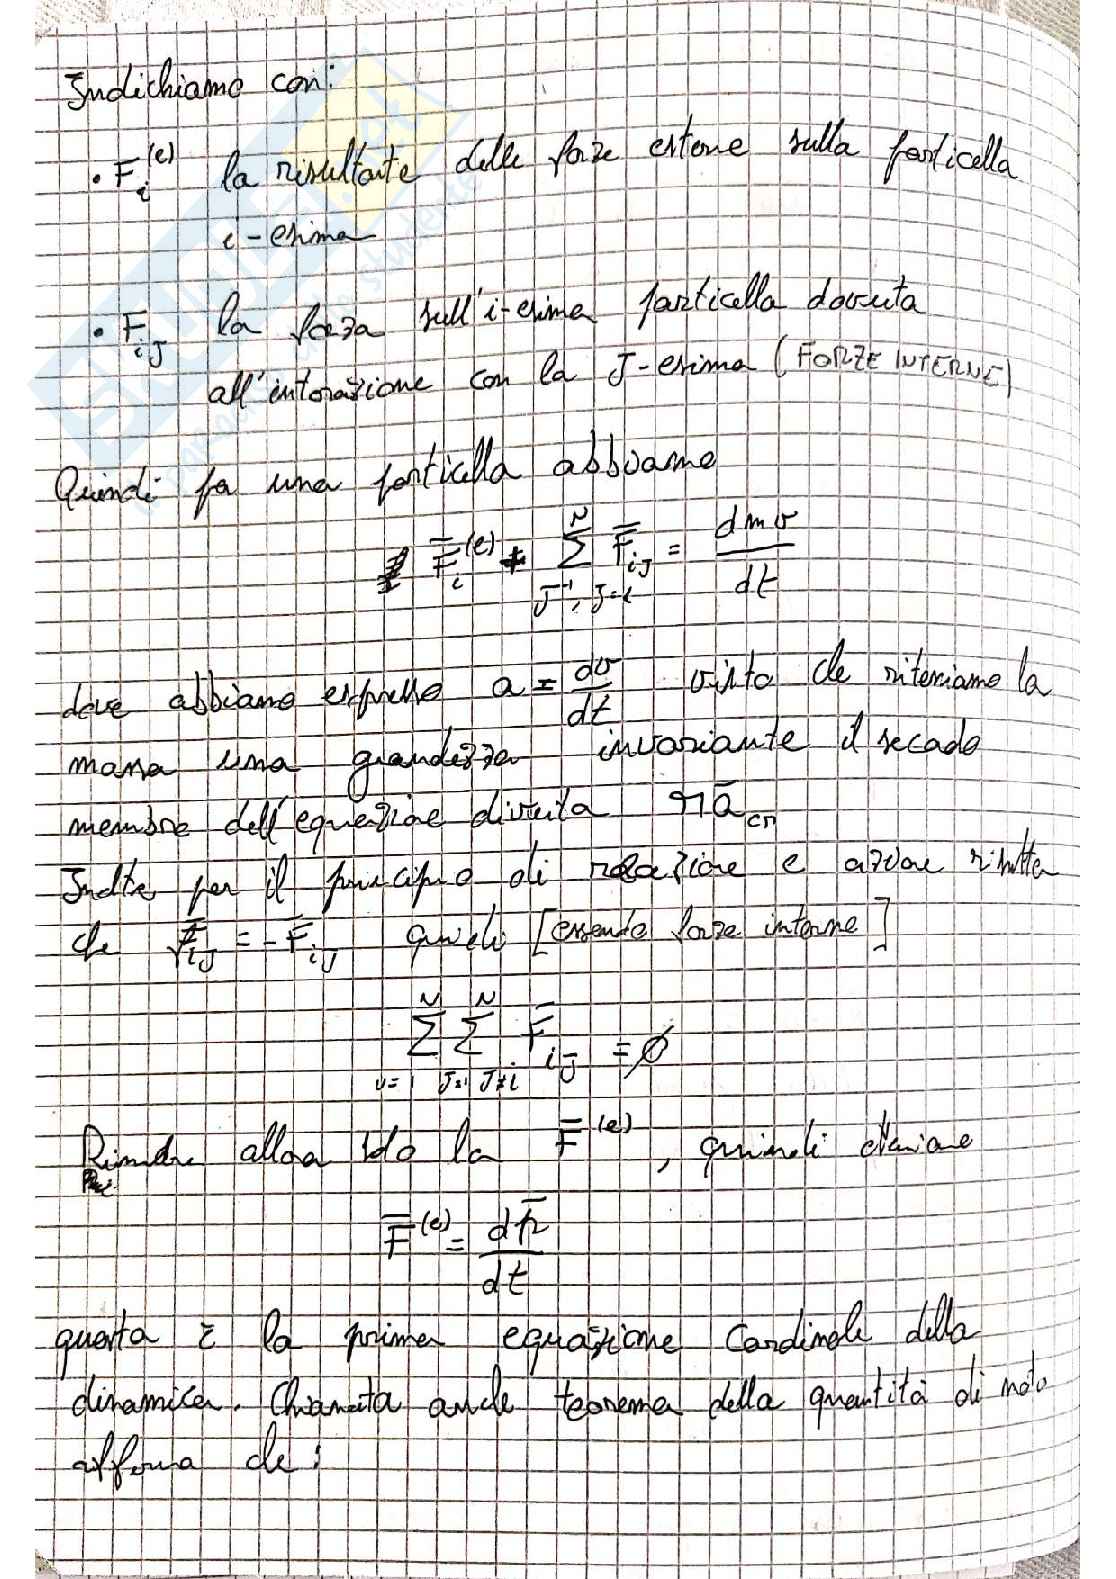 Indichiamo con:
• F_i^(e) la risultante delle forze esterne sulla particella
i-esima
• F_iJ la forza sull'i-esima particella dovuta
all'interazione con la J-esima (FORZE INTERNE)
Quindi per una particella abbiamo
F̄_i^(e) + Σ^N_{J=1, J=i} F̄_iJ = dmv/dt
dove abbiamo espresso a = dv/dt visto che riteniamo la
massa una grandezza invariante il secondo
membro dell'equazione diventa M ā_cm
Inoltre per il principio di reazione e azione risulta
che F̄_iJ = - F̄_iJ quindi [essendo forze interne]
Σ^N_{i=1} Σ^N_{J=1 J≠i} F̄_iJ = ∅
Rimane allora solo la F̄^(e), quindi ottenione
F̄^(e) = dp̄/dt
questa è la prima equazione Cardinale della
dinamica. Chiamata anche teorema della quantità di moto
afferma che: